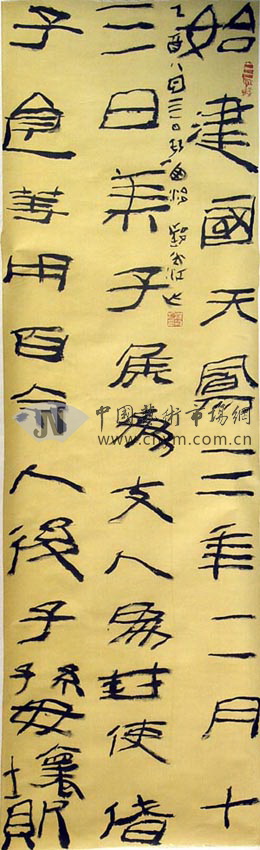 始建國天鳳三年二月十
三日萊子侯為支人為封使偖
子食等用百余人後子孫毋壞敗
乙酉八月
中國藝術市場網